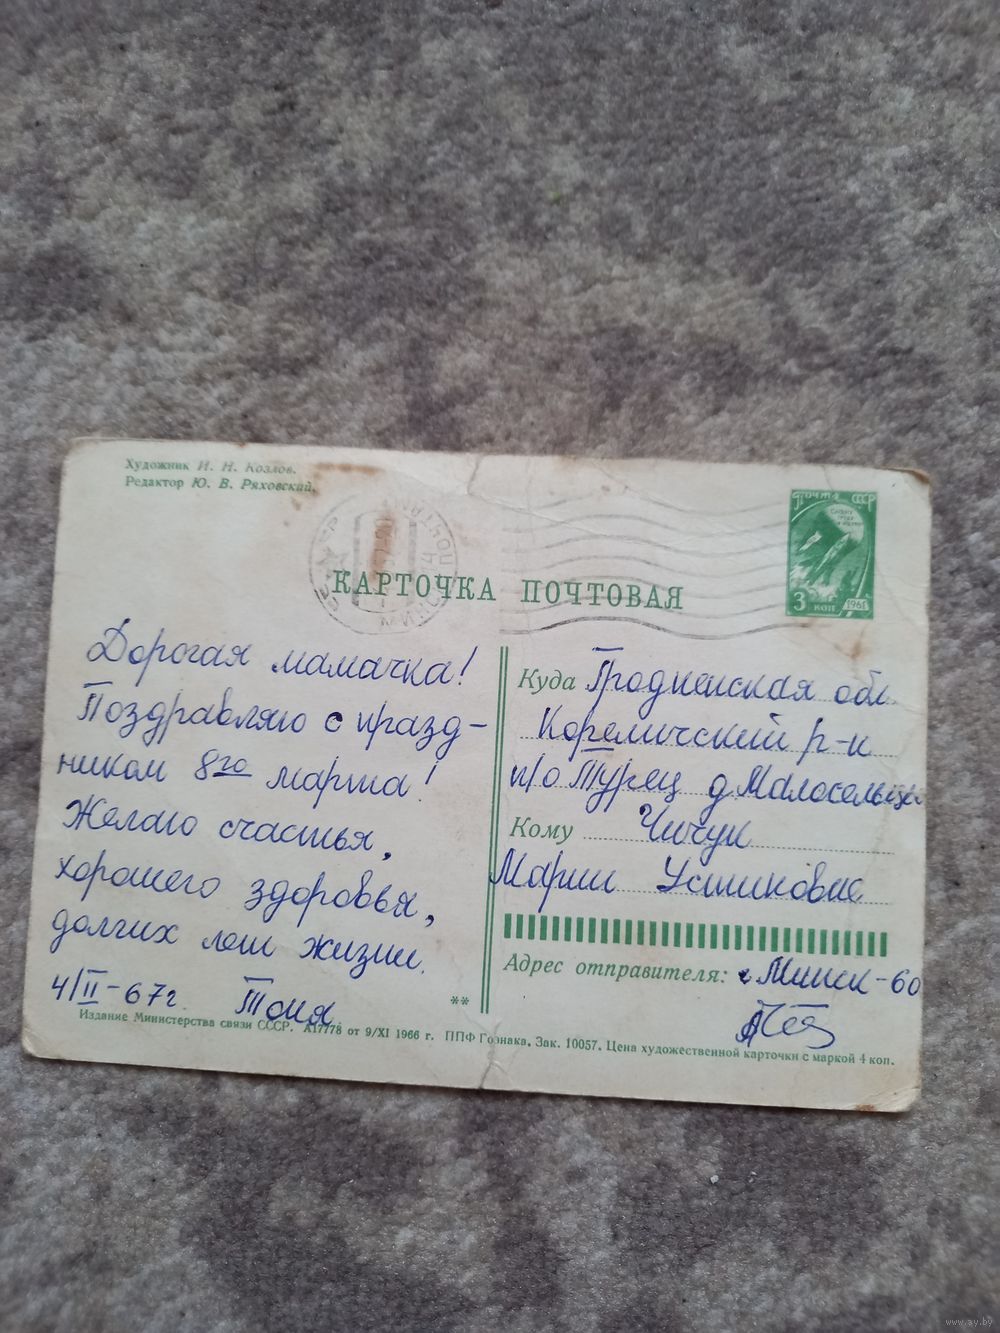 Художник И. Н. Козлов.
Редактор Ю. В. Ряховский.
ПОЧТА СССР
3 КОП
1961
КАРТОЧКА ПОЧТОВАЯ
Дорогая мамачка!
Поздравляю с празд-
ником 8го марта!
Желаю счастья,
хорошего здоровья,
долгих лет жизни.
4/II-67г. Тоня
Куда Гродненская обл.
Кореличский р-н
п/о Турец д. Малосельцы
Кому Чичук
Марии Устиновне
Адрес отправителя: г. Минск-60
**
Издание Министерства связи СССР. А17778 от 9/XI 1966 г. ППФ Гознака. Зак. 10057. Цена художественной карточки с маркой 4 коп.
www.ay.by